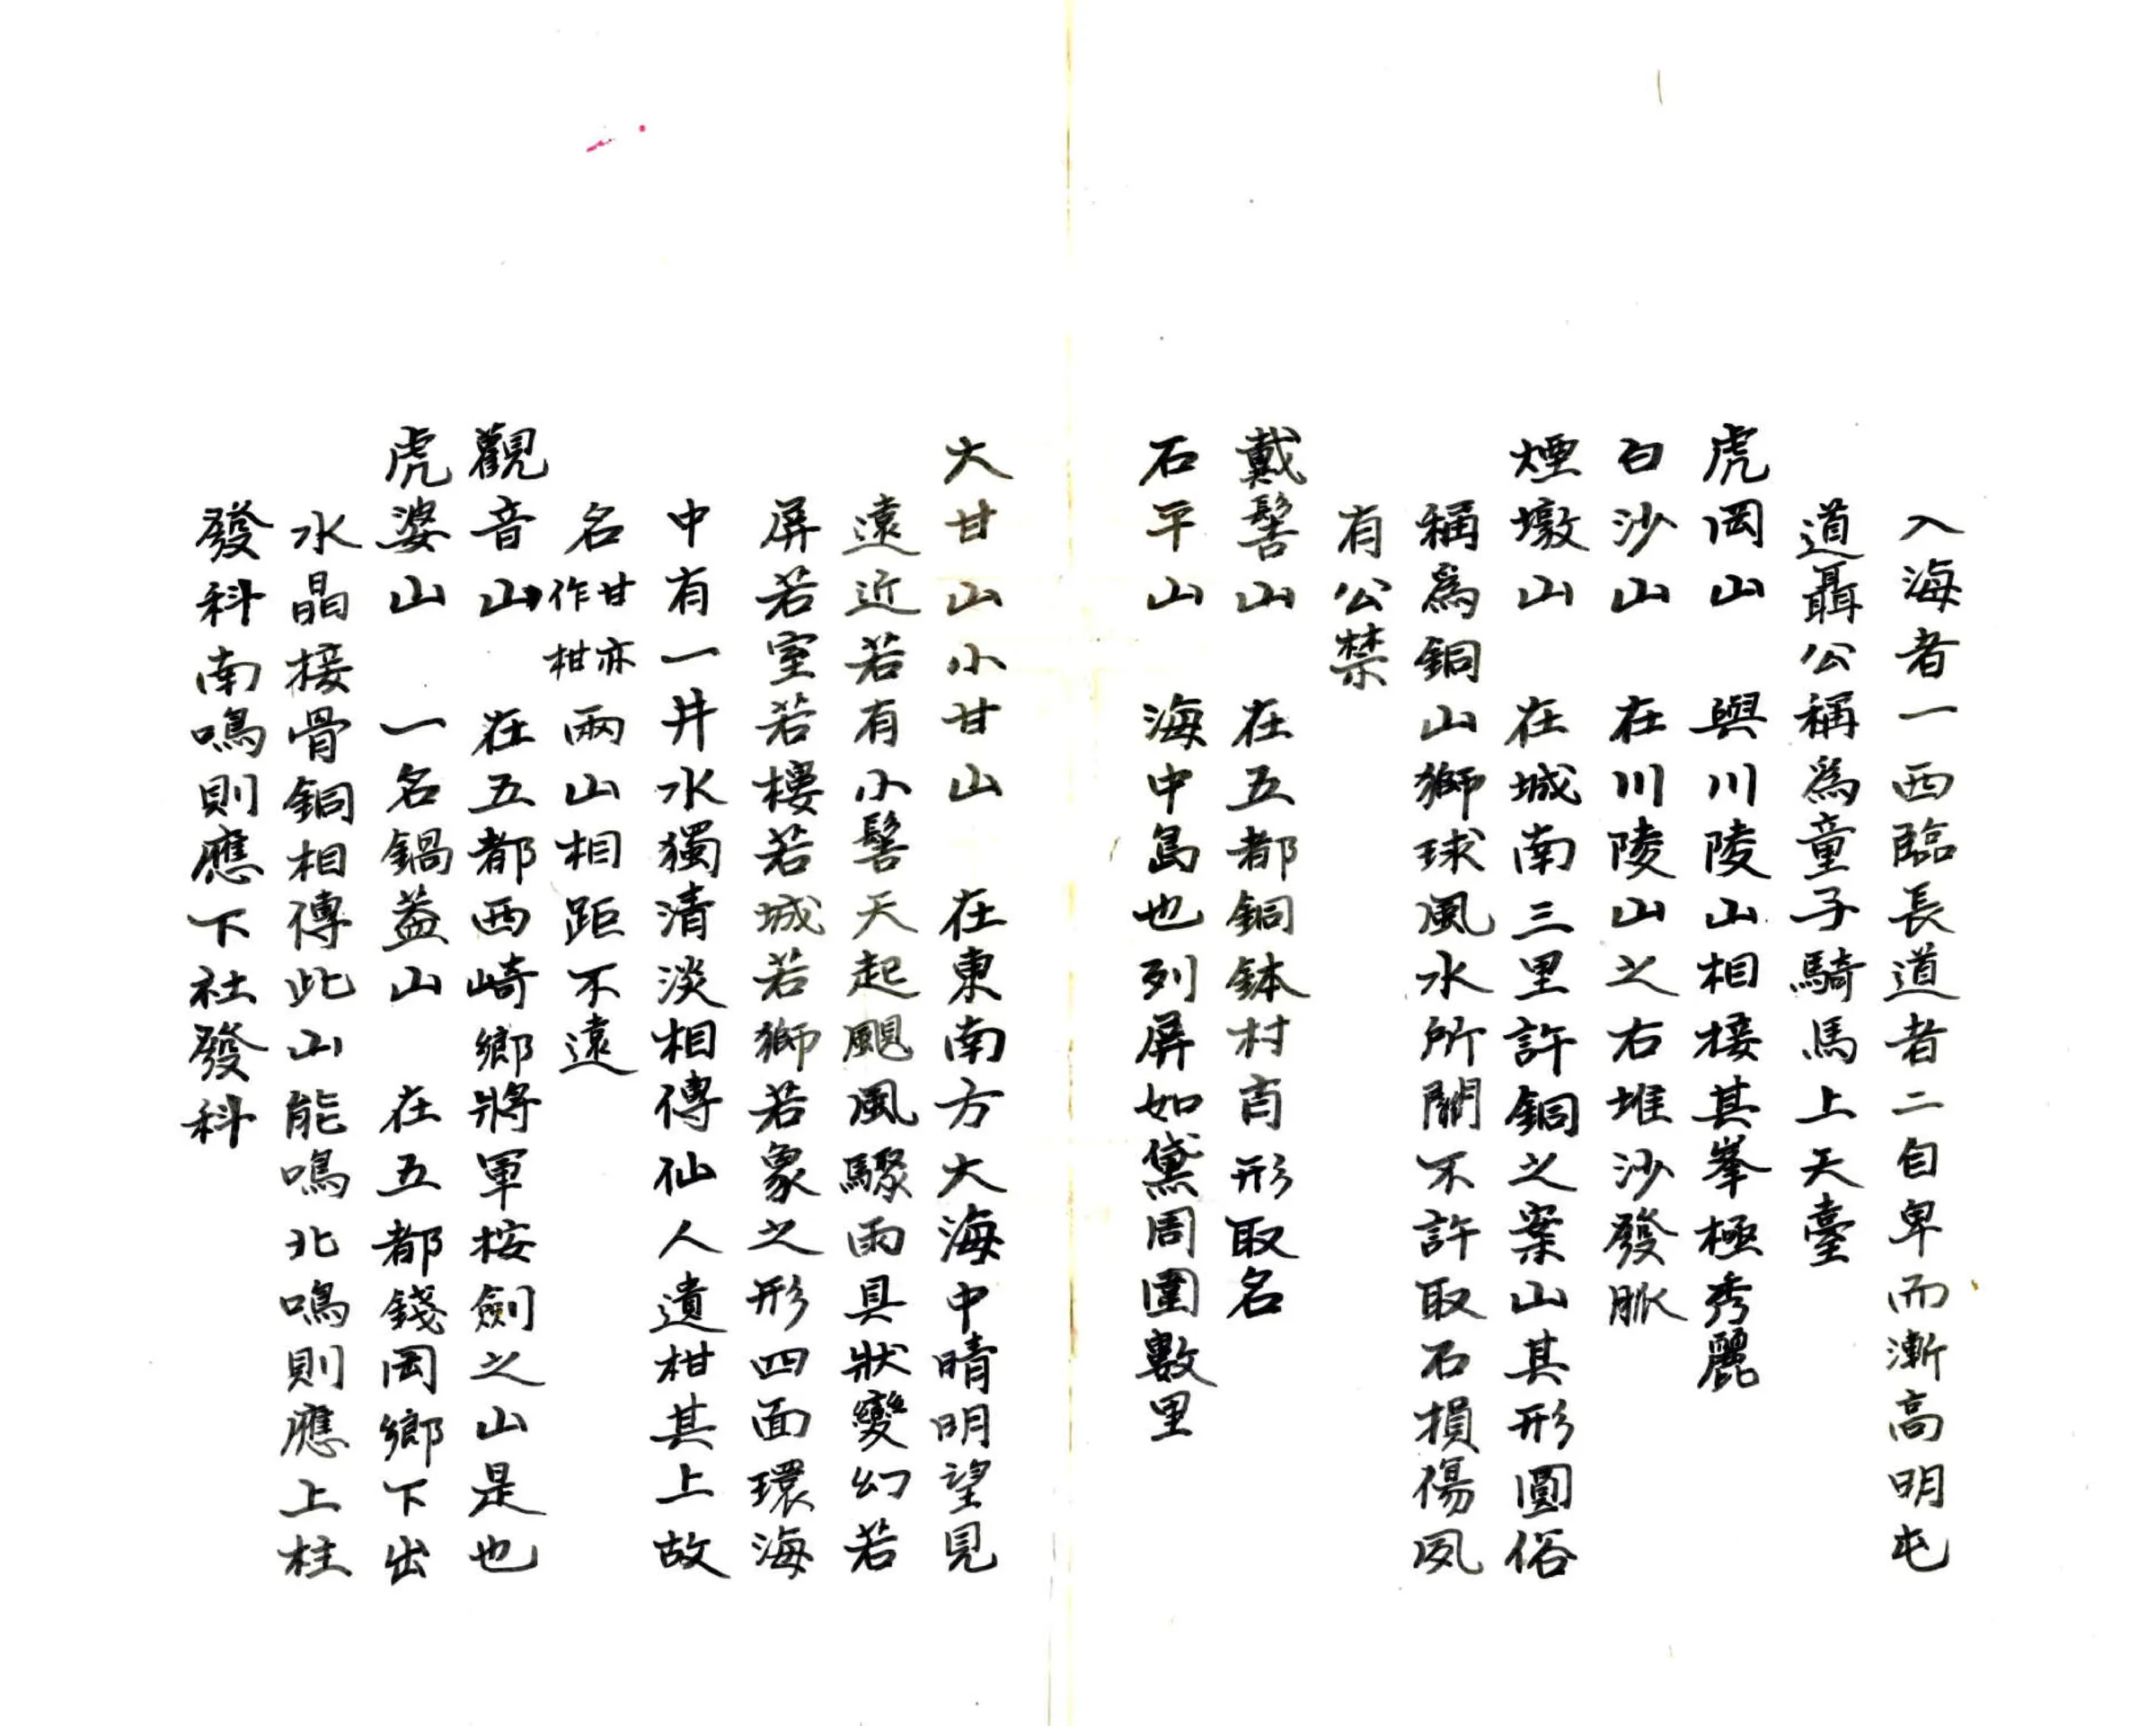 入海者一西臨長道者二自卑而漸高明屯
道聶公稱爲童子騎馬上天臺
虎岡山　與川陵山相接其峯極秀麗
白沙山　在川陵山之右堆沙發脈
煙墩山　在城南三里許銅之案山其形圓俗
稱爲銅山獅球風水所關不許取石損傷夙
有公禁
戴髻山　在五都銅鉢村肖形取名
石平山　海中島也列屏如黛周圍數里
大甘山小甘山　在東南方大海中晴明望見
遠近若有小髻天起颶風驟雨具狀變幻若
屏若室若樓若城若獅若象之形四面環海
中有一井水獨清淡相傳仙人遺柑其上故
名甘亦作柑兩山相距不遠
觀音山　在五都西崎鄉將軍按劍之山是也
虎婆山　一名鍋蓋山　在五都錢岡鄉下出
水晶接骨銅相傳此山能鳴北鳴則應上柱
發科南鳴則應下社發科